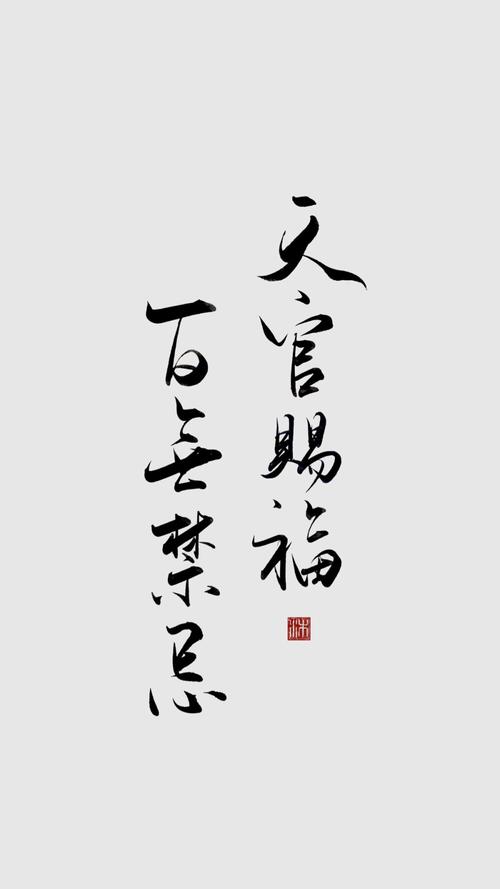 天官賜福
百無禁忌
沐